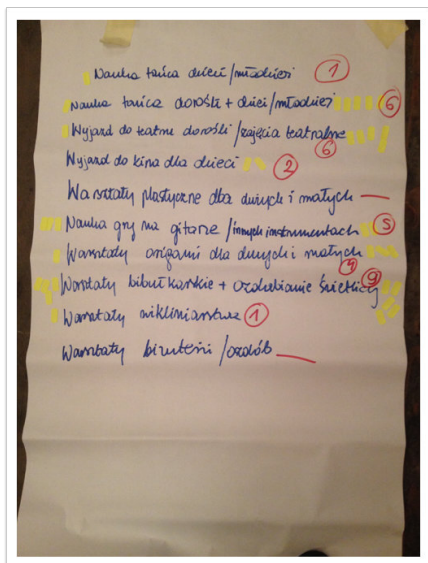 Nauka tańca dzieci/młodzież 1
Nauka tańca dorośli + dzieci/młodzież 6
Wyjazd do teatru dorośli/zajęcia teatralne 6
Wyjazd do kina dla dzieci 2
Warsztaty plastyczne dla dużych i małych —
Nauka gry na gitarze/innych instrumentach 5
Warsztaty origami dla dużych i małych
Warsztaty bibułkarskie + ozdabianie świetlicy 9
Warsztaty wikliniarstwa 1
Warsztaty biżuterii/ozdób —